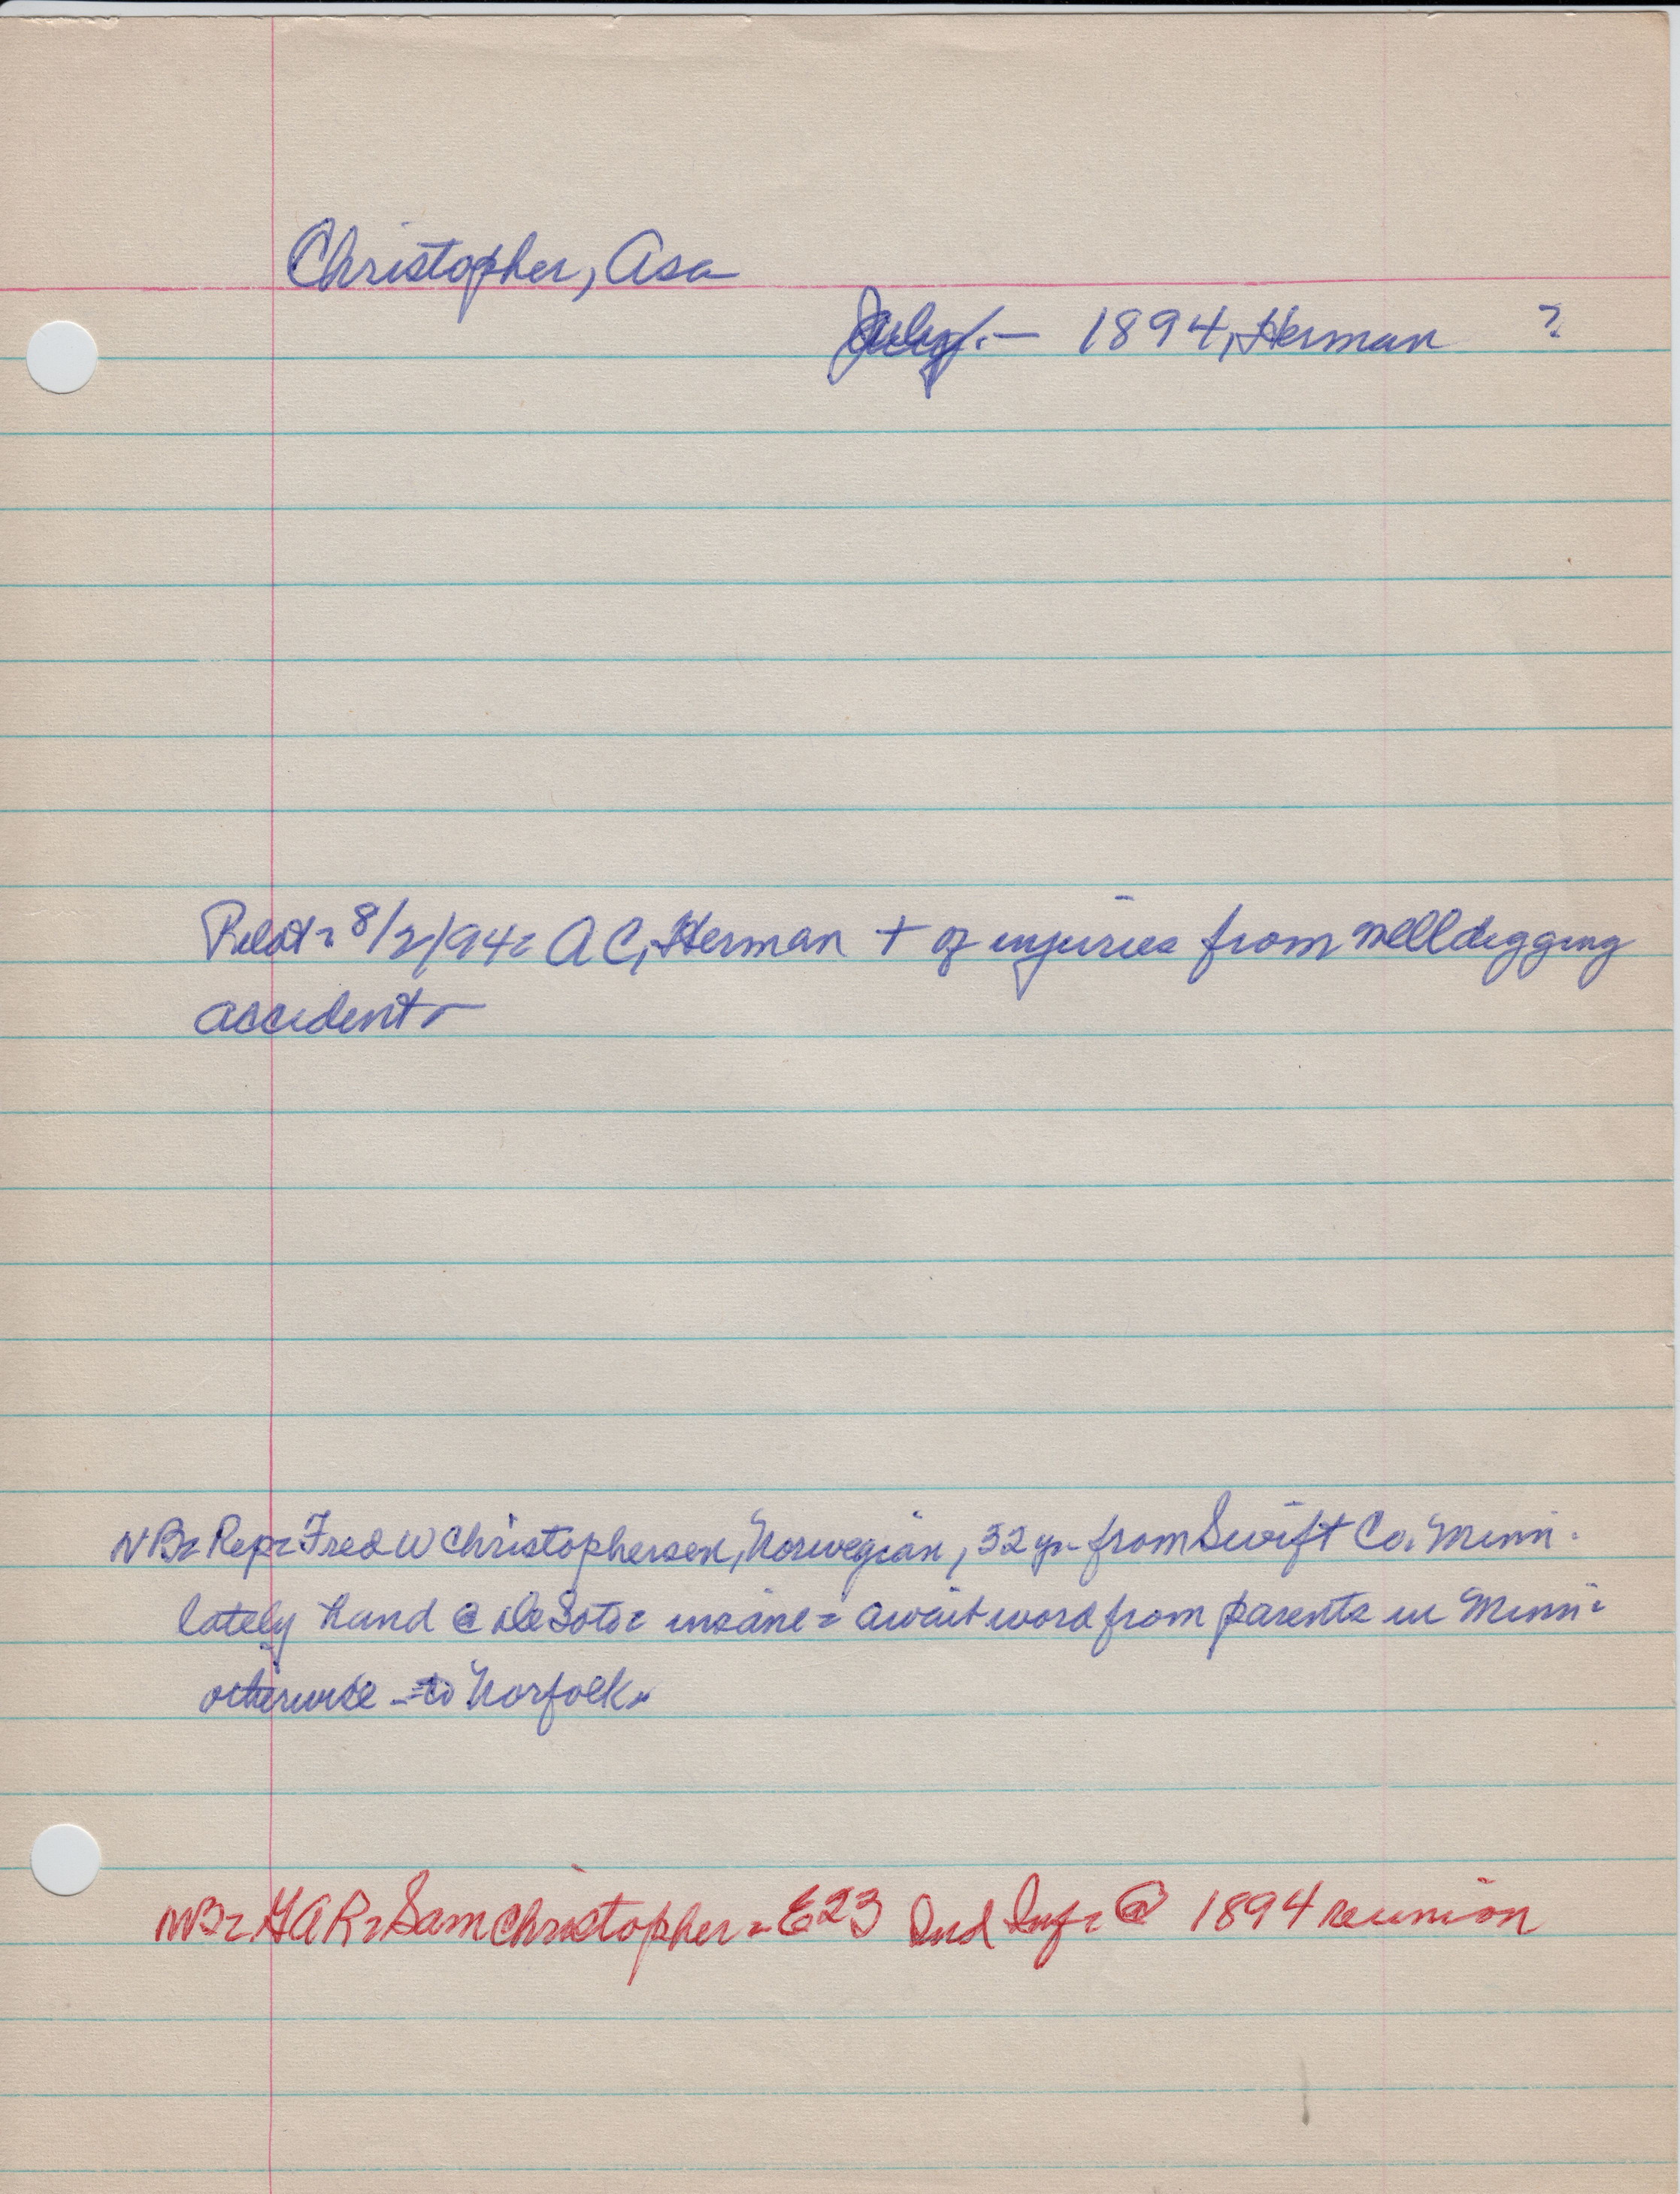 Christopher, Asa
July - 1894, Herman ?
Pilot = 8/2/94 = A C, Herman + of injuries from welldigging
accident -
NB = Rep = Fred W Christophersen, Norwegian, 32 yr - from Swift Co. Minn.
lately hand @ DeSoto = insane = await word from parents in Minn =
otherwise - to Norfolk.
NB = GAR = Sam Christopher = E23 Ind Inf = @ 1894 reunion